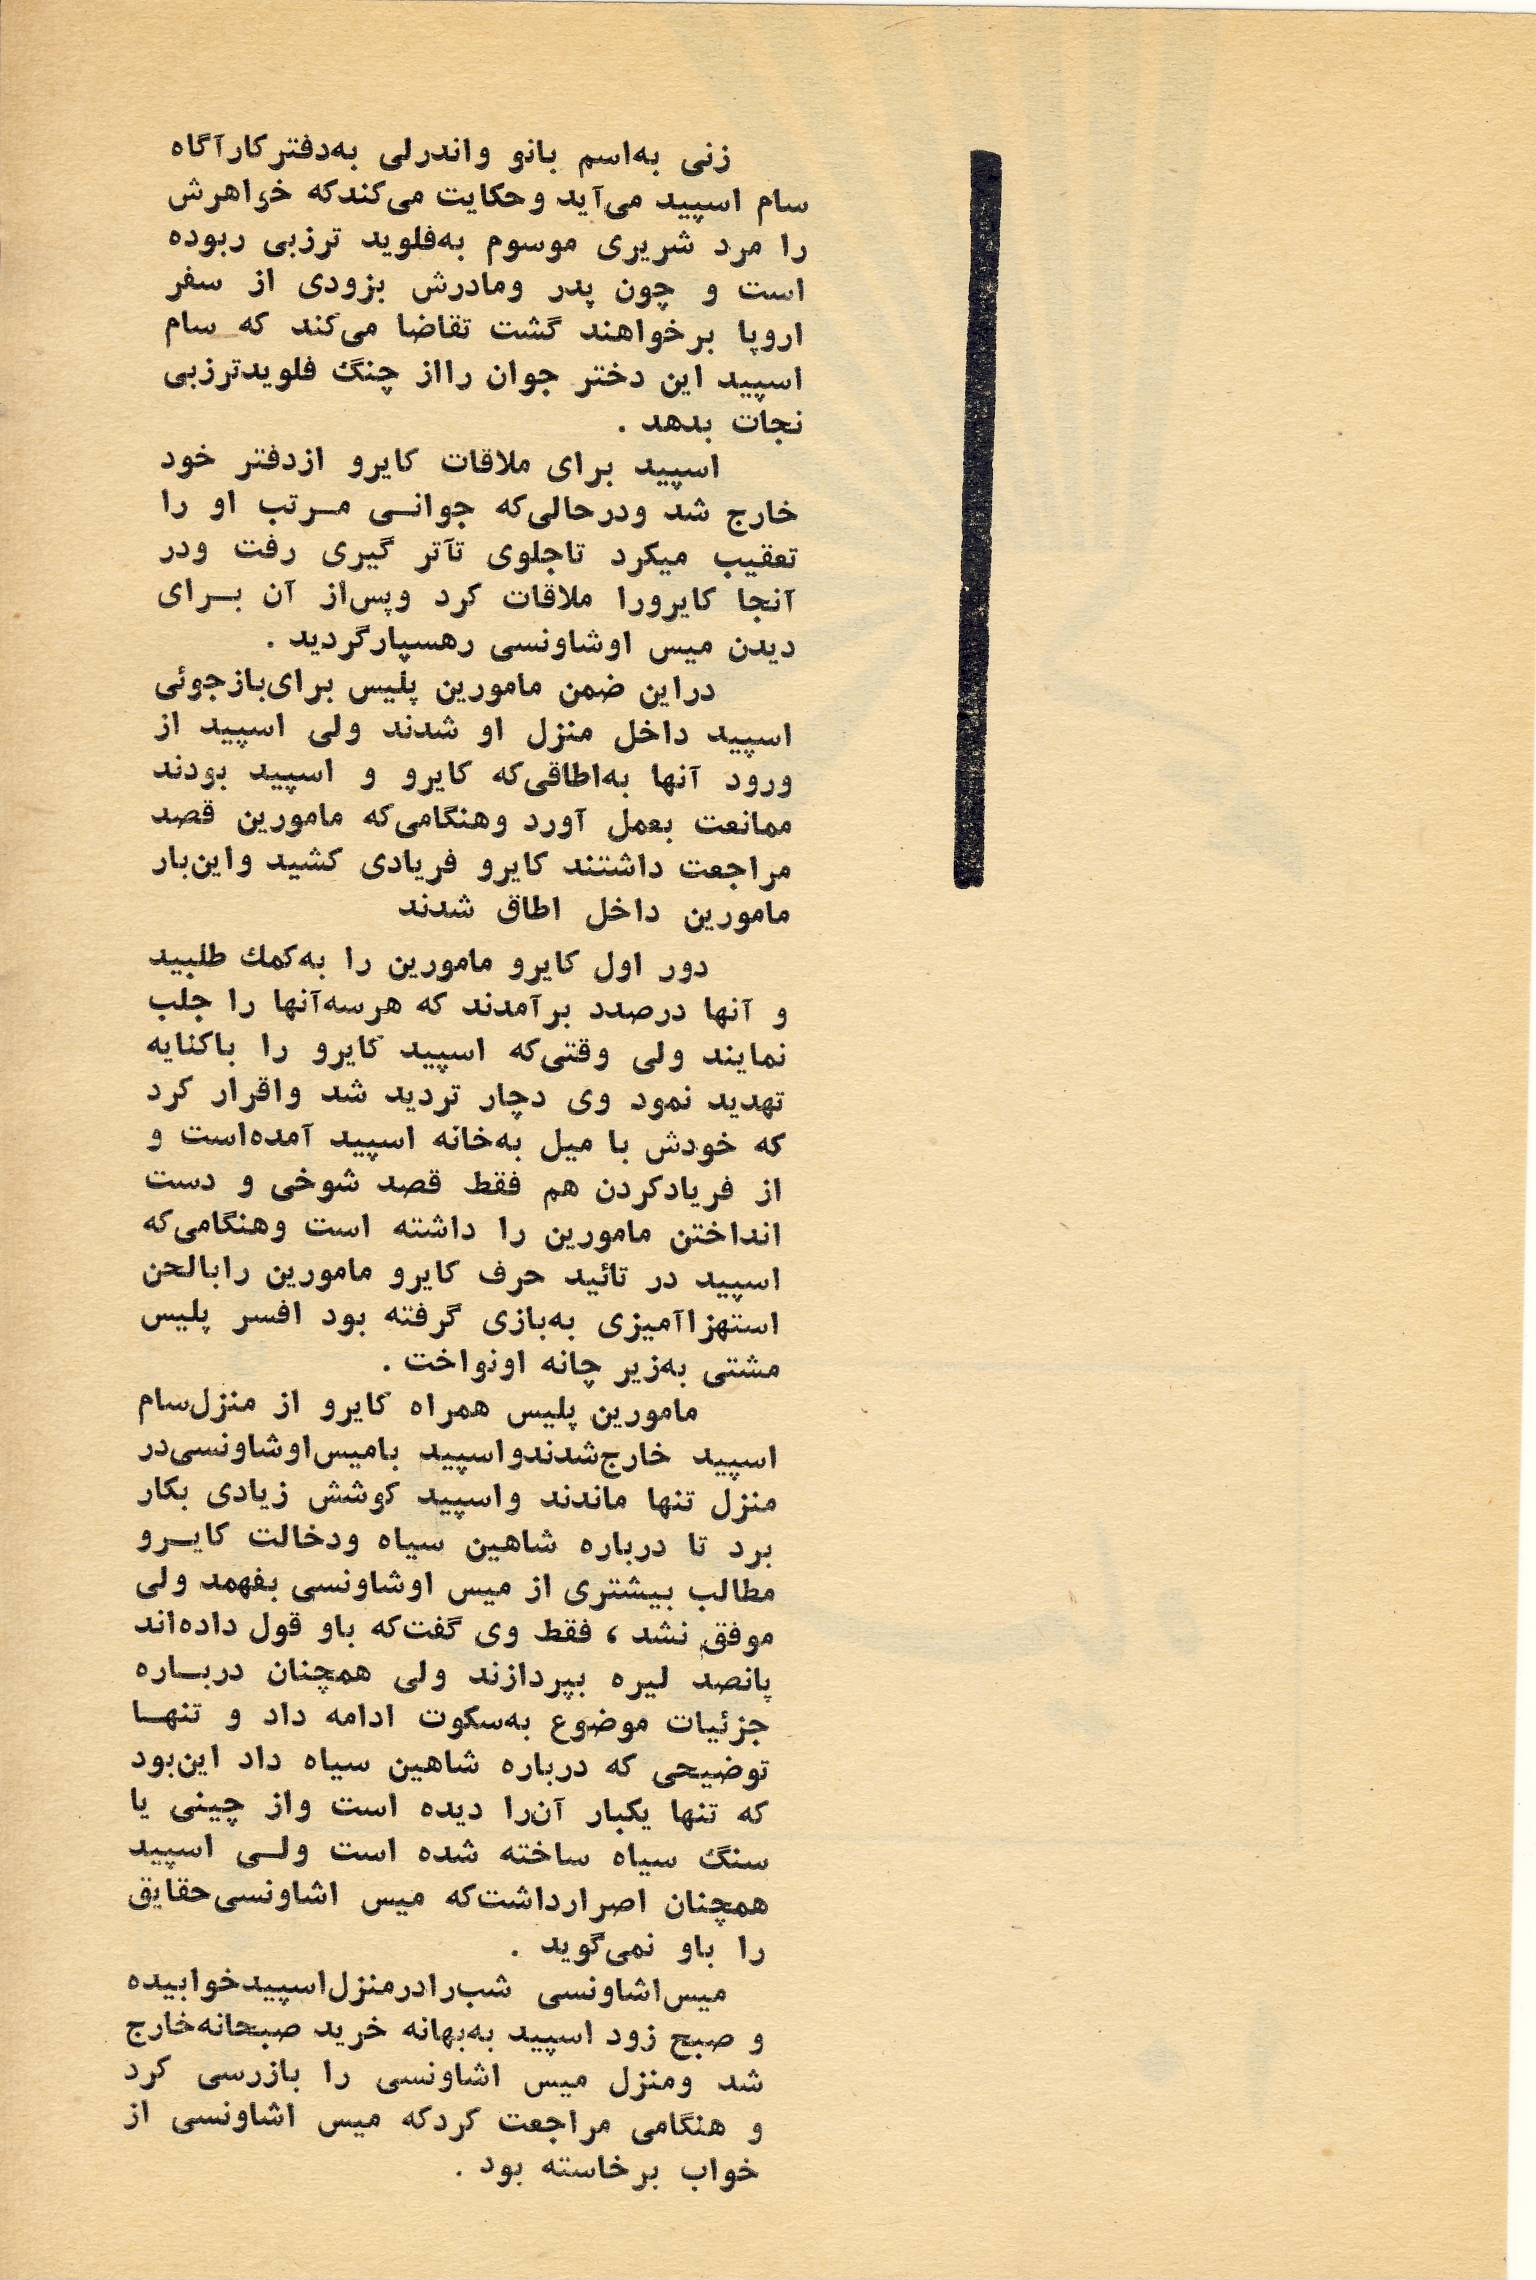 زنی به‌اسم بانو واندرلی به‌دفترکارآگاه
سام اسپید می‌آید وحکایت می‌کندکه خواهرش
را مرد شریری موسوم به‌فلوید ترزبی ربوده
است و چون پدر ومادرش بزودی از سفر
اروپا برخواهند گشت تقاضا می‌کند که سام
اسپید این دختر جوان رااز چنگ فلویدترزبی
نجات بدهد .
اسپید برای ملاقات کایرو ازدفتر خود
خارج شد ودرحالی‌که جوانـی مـرتب او را
تعقیب میکرد تاجلوی تآتر گیری رفت ودر
آنجا کایرورا ملاقات کرد وپس‌از آن بـرای
دیدن میس اوشاونسی رهسپارگردید .
دراین ضمن مامورین پلیس برای‌بازجوئی
اسپید داخل منزل او شدند ولی اسپید از
ورود آنها به‌اطاقی‌که کایرو و اسپید بودند
ممانعت بعمل آورد وهنگامی‌که مامورین قصد
مراجعت داشتند کایرو فریادی کشید واین‌بار
مامورین داخل اطاق شدند
دور اول کایرو مامورین را به‌کمك طلبید
و آنها درصدد برآمدند که هرسه‌آنها را جلب
نمایند ولی وقتی‌که اسپید کایرو را باکنایه
تهدید نمود وی دچار تردید شد واقرار کرد
که خودش با میل به‌خانه اسپید آمده‌است و
از فریادکردن هم فقط قصد شوخی و دست
انداختن مامورین را داشته است وهنگامی‌که
اسپید در تائید حرف کایرو مامورین رابالحن
استهزاآمیزی به‌بازی گرفته بود افسر پلیس
مشتی به‌زیر چانه اونواخت .
مامورین پلیس همراه کایرو از منزل‌سام
اسپید خارج‌شدندواسپید بامیس‌اوشاونسی‌در
منزل تنها ماندند واسپید کوشش زیادی بکار
برد تا درباره شاهین سیاه ودخالت کایـرو
مطالب بیشتری از میس اوشاونسی بفهمد ولی
موفق نشد ، فقط وی گفت‌که باو قول داده‌اند
پانصد لیره بپردازند ولی همچنان دربـاره
جزئیات موضوع به‌سکوت ادامه داد و تنهـا
توضیحی که درباره شاهین سیاه داد این‌بود
که تنها یکبار آن‌را دیده است واز چینی یا
سنگ سیاه ساخته شده است ولـی اسپید
همچنان اصرارداشت‌که میس اشاونسی‌حقایق
را باو نمی‌گوید .
میس‌اشاونسی شب‌رادرمنزل‌اسپیدخوابیده
و صبح زود اسپید به‌بهانه خرید صبحانه‌خارج
شد ومنزل میس اشاونسی را بازرسی کرد
و هنگامی مراجعت کردکه میس اشاونسی از
خواب برخاسته بود .